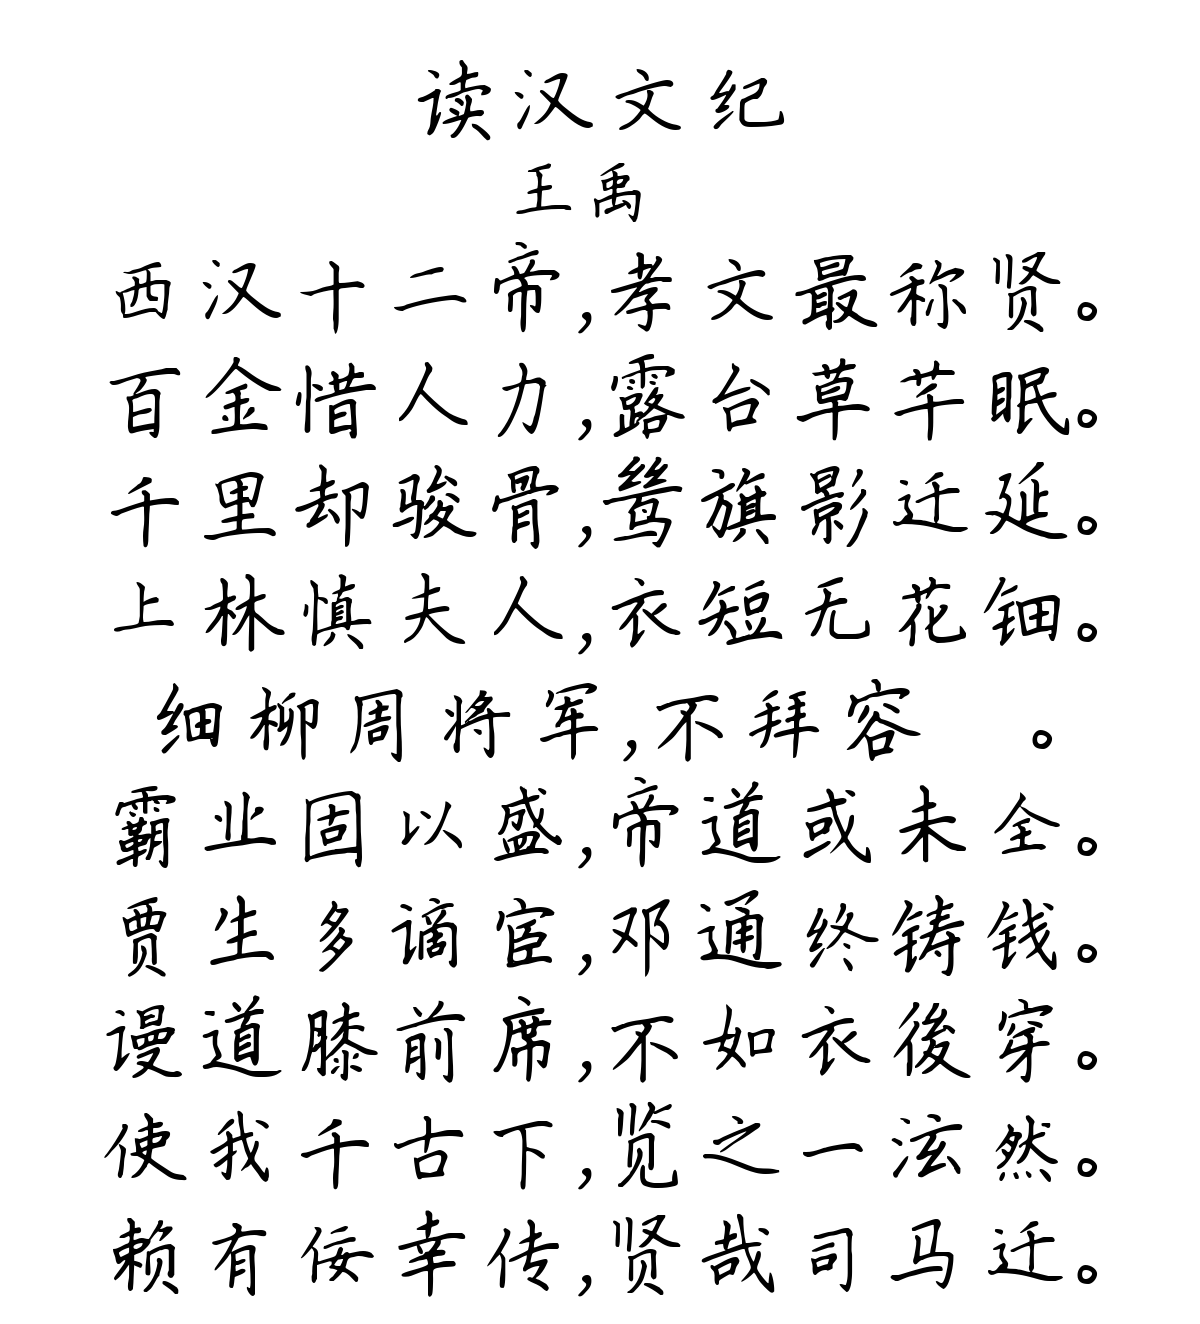 读汉文纪
王禹
西汉十二帝,孝文最称贤。
百金惜人力,露台草芊眠。
千里却骏骨,鸶旗影迁延。
上林慎夫人,衣短无花钿。
细柳周将军,不拜容 。
霸业固以盛,帝道或未全。
贾生多谪宦,邓通终铸钱。
谩道膝前席,不如衣後穿。
使我千古下,览之一泫然。
赖有佞幸传,贤哉司马迁。